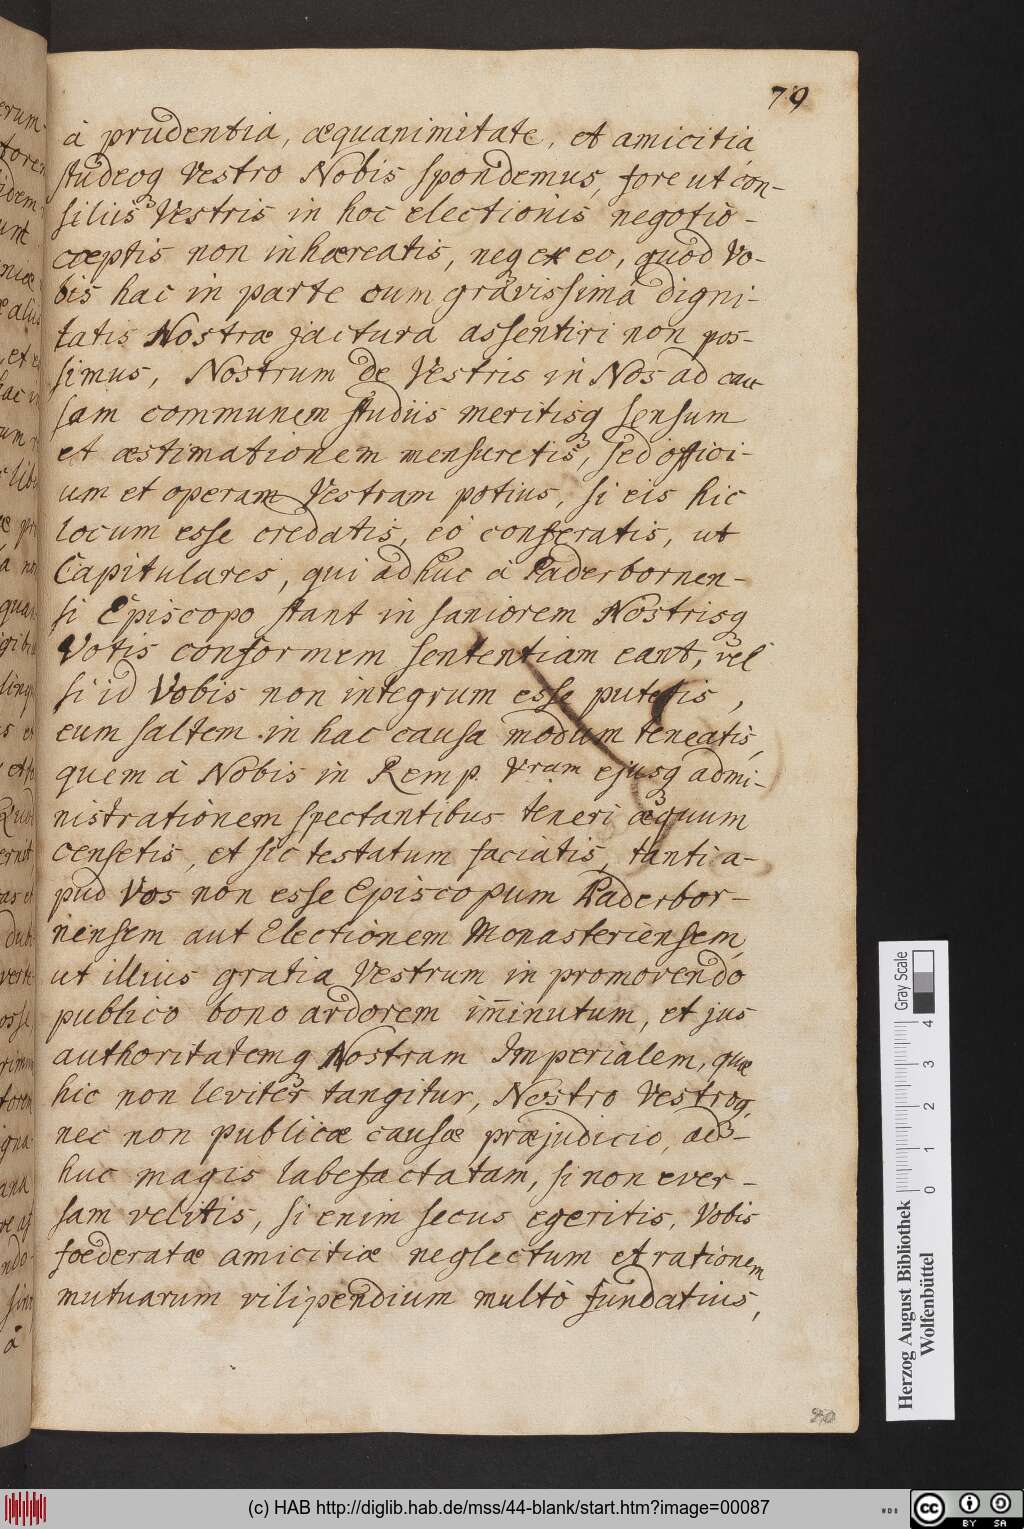 79
à prudentia, æquanimitate, et amicitia
studeoq Vestro Nobis spondemus, fore ut con-
siliis Vestris in hoc electionis negotio-
cœptis non inhæreatis, neq ex eo, quod Vo-
bis hac in parte cum gravissimâ digni-
tatis Nostræ jactura assentiri non pos-
simus, Nostrum de Vestris in Nos ad cau
sam communem studiis meritisq sensum
et æstimationem mensuretis, sed offici-
um et operam Vestram potius, si eis hic
locum esse credatis, eò conferatis, ut
Capitulares, qui adhuc à Paderbornen-
si Episcopo stant in saniorem Nostrisq
Votis conformem sententiam eant, vel
si id Vobis non integrum esse putetis,
eum saltem in hac causa modum teneatis,
quem à Nobis in Remp. Vram ejusq admi-
nistrationem spectantibus teneri æquum
censetis, et sic testatum faciatis, tanti a-
pud Vos non esse Episcopum Paderbor-
nensem aut Electionem Monasteriensem,
ut illius gratia Vestrum in promovendo
publico bono ardorem im̄inutum, et jus
authoritatemq Nostram Imperialem, quæ
hic non leviter tangitur, Nostro Vestroq,
nec non publicæ causæ præjudicio, ad-
huc magis labefactatam, si non ever-
sam velitis, si enim secus egeritis, Vobis
fœderatæ amicitiæ neglectum et rationem
mutuarum vilipendium multò fundatius,
Herzog August Bibliothek
Wolfenbüttel
Gray Scale
0 1 2 3 4
(c) HAB http://diglib.hab.de/mss/44-blank/start.htm?image=00087
cc BY SA